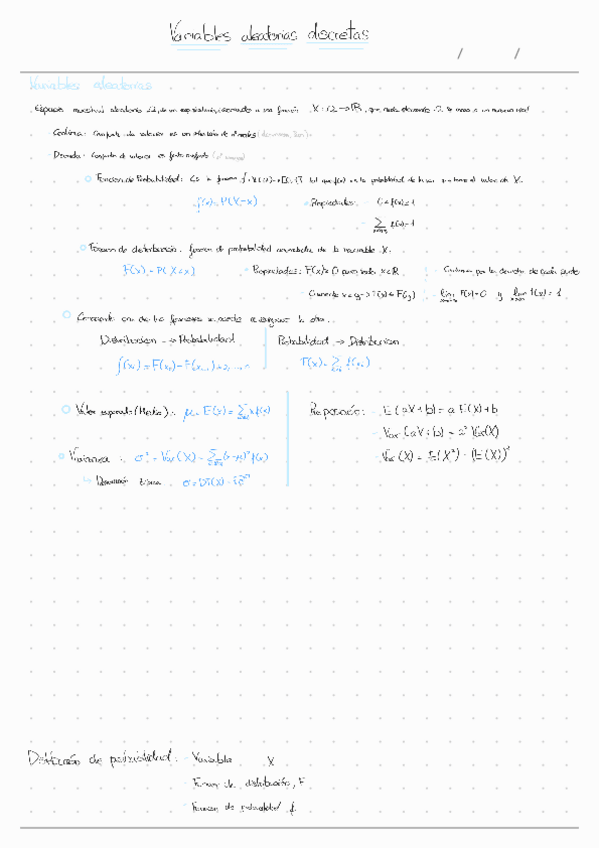 Variables aleatorias discretas
/ /
Variables aleatorias
Espacio muestral aleatorio una función X: Ω → ℝ, que cada elemento Ω le a un número real
Continua: Conjunto de valores es un intervalo de
Discreta: Conjunto de valores es finito
Función de Probabilidad: Es la función f: X(Ω) → [0,1] tal que f(x) es la probabilidad de el valor de X.
f(x) = P(X=x) Propiedades: 0 ≤ f(x) ≤ 1
∑ f(x) = 1
Función de distribución: función de probabilidad acumulada de la variable X.
F(x) = P(X≤x) Propiedades: F(x) ≥ 0 para todo x∈ℝ Continua por la derecha en cada punto
Creciente x<y → F(x) ≤ F(y) lim F(x) = 0 y lim F(x) = 1
Conociendo una de las funciones se puede la otra.
Distribución → Probabilidad Probabilidad → Distribución
Valor esperado (Media): μ = E(x) = ∑ x f(x) Propiedades: E(aX+b) = a E(X) + b
Var(aX+b) = a² Var(X)
Varianza: σ² = Var(X) = ∑ (x-μ)² f(x) Var(X) = E(X²) - (E(X))²
Desviación típica
Distribución de probabilidad: Variable X
Función de distribución, F
Función de probabilidad f.